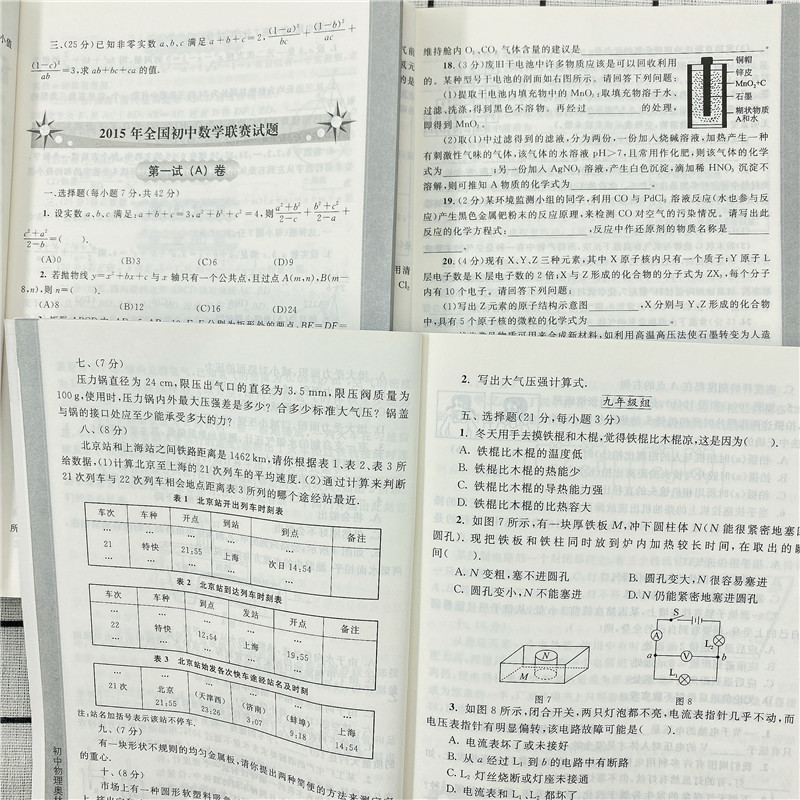 三、(25分)已知非零实数a,b,c满足a+b+c=2,(1-a)²/bc+(1-b)²/ac+
(1-c)²/ab=3,求ab+bc+ca的值.
2015年全国初中数学联赛试题
第一试(A)卷
一、选择题(每小题7分,共42分)
1. 设实数a,b,c满足:a+b+c=3,a²+b²+c²=4,则(a²+b²)/(2-c)+(b²+c²)/(2-a)+
(c²+a²)/(2-b)=( ).
(A)0 (B)3 (C)6 (D)9
2. 若抛物线y=x²+bx+c与x轴只有一个公共点,且过点A(m,n),B(m-
8,n),则n=( ).
(A)8 (B)12 (C)16 (D)24
维持舱内O₂、CO₂气体含量的建议是
18.(3分)废旧干电池中许多物质应该是可以回收利用
的。某种型号干电池的剖面如右图所示。请回答下列问题:
(1)提取干电池内填充物中的MnO₂:取填充物溶于水、
过滤、洗涤,得到黑色不溶物。再经过 的处理,
即得到MnO₂。
铜帽
锌皮
MnO₂+C
石墨
糊状物质
A和水
(2)取(1)中过滤得到的滤液,分为两份,一份加入烧碱溶液,加热产生一种
有刺激性气味的气体,该气体的水溶液pH>7,且常用作化肥,则该气体的化学
式为 ;另一份加入AgNO₃溶液,产生白色沉淀,滴加稀HNO₃沉淀不
溶解,则可推知A物质的化学式为 。
19.(2分)某环境监测小组的同学,利用CO与PdCl₂溶液反应(水也参与反
应)产生黑色金属钯粉末的反应原理,来检测CO对空气的污染情况。请写出此
反应的化学方程式: ,反应中作还原剂的物质名称是
。
20.(4分)现有X、Y、Z三种元素,其中X原子核内只有一个质子;Y原子L
层电子数是K层电子数的2倍;X与Z形成的化合物的分子式为ZX₃,每个分子
内有10个电子。请回答下列问题:
(1)写出Z元素的原子结构示意图 ,X分别与Y、Z形成的化合物
中,具有5个原子核的微粒的化学式为 。
七、(7分)
压力锅直径为24 cm,限压出气口的直径为3.5 mm,限压阀质量为
100 g,使用时,压力锅内外最大压强差是多少?合多少标准大气压?锅盖
与锅的接口处应至少能承受多大的力?
八、(8分)
北京站和上海站之间铁路距离是1462 km,请你根据表1、表2、表3所
给数据,(1)计算北京至上海的21次列车的平均速度.(2)通过计算来判断
21次列车与22次列车相会地点距离表3所列的哪个途经站最近.
表1 北京站开出列车时刻表
车次 车种 开点 到站 到点 备注
… … … … …
21 特快 21:55 上海 次日14:54
… … … … …
表2 北京站到达列车时刻表
车次 车种 到点 发站 开点 备注
… … … … …
22 特快 12:54 上海 19:55
… … … … …
表3 北京站始发各次快车途经站名及时刻
21次 北京 (天津西) (济南) (蚌埠) 上海
21:55 23:26 3:07 9:18 14:54
注:站名加括号表示该站不停车.
九、(7分)
有一块形状不规则的均匀金属板,请你提出两种简便的方法来测定它
的重心.
十、(8分)
初中物理奥林
2. 写出大气压强计算式.
九年级组
五、选择题(21分,每小题3分)
1. 冬天用手去摸铁棍和木棍,觉得铁棍比木棍凉,这是因为( ).
A. 铁棍比木棍的温度低
B. 铁棍比木棍的热能少
C. 铁棍比木棍的导热能力强
D. 铁棍比木棍的比热容大
2. 如图7所示,有一块厚铁板M,冲下圆柱体N(N能很紧密地塞
圆孔).现把铁板和铁柱同时放到炉内加热较长时间,在取出的
间( ).
A. N变粗,塞不进圆孔 B. 圆孔变大,N很容易塞进
C. 圆孔变小,N不能塞进 D. N仍能紧密地塞进圆孔
N
M
图7
S
A
L₂
a V b
L₁
图8
3. 如图8所示,闭合开关,两只灯泡都不亮,电流表指针几乎不动,而
电压表指针有明显偏转,该电路故障可能是( ).
A. 电流表坏了或未接好
B. 从a经过L₁到b的电路中有断路
C. L₂灯丝烧断或灯座未接通
D. 电流表和L₁、L₂都坏了